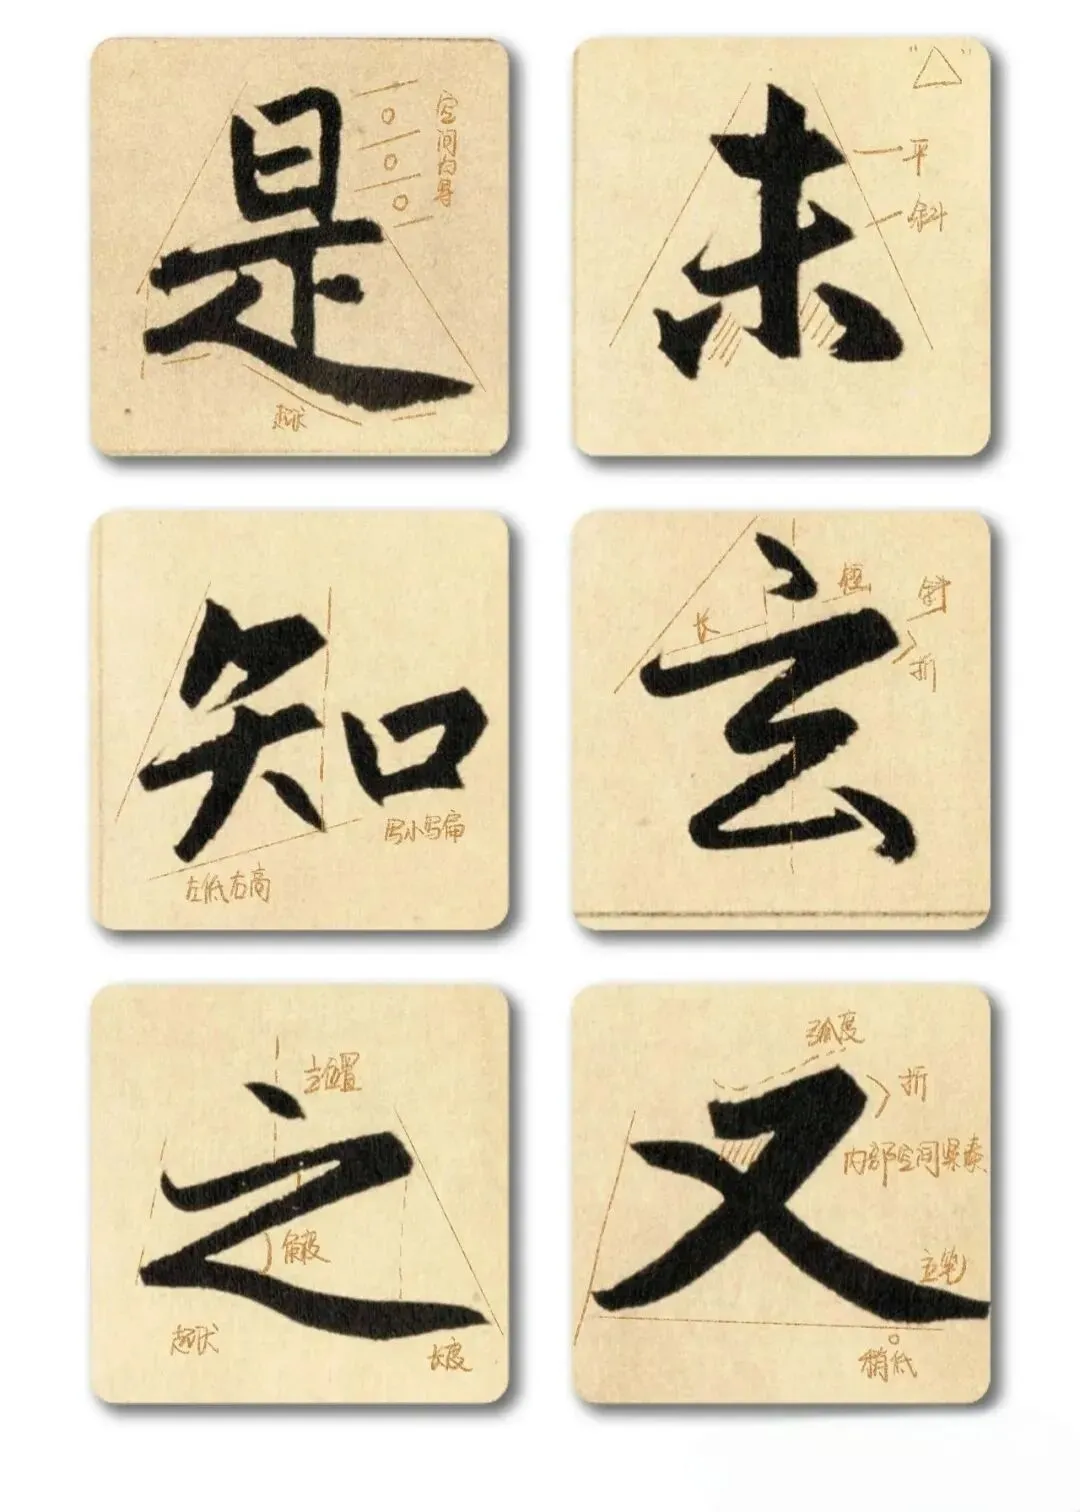 是
空间均等
起伏
未
"△"
平
斜
知
写小写扁
左低右高
玄
长
短
斜
折
之
主位置
角度
起伏
长度
又
弧度
折
内部空间紧凑
主笔
稍低